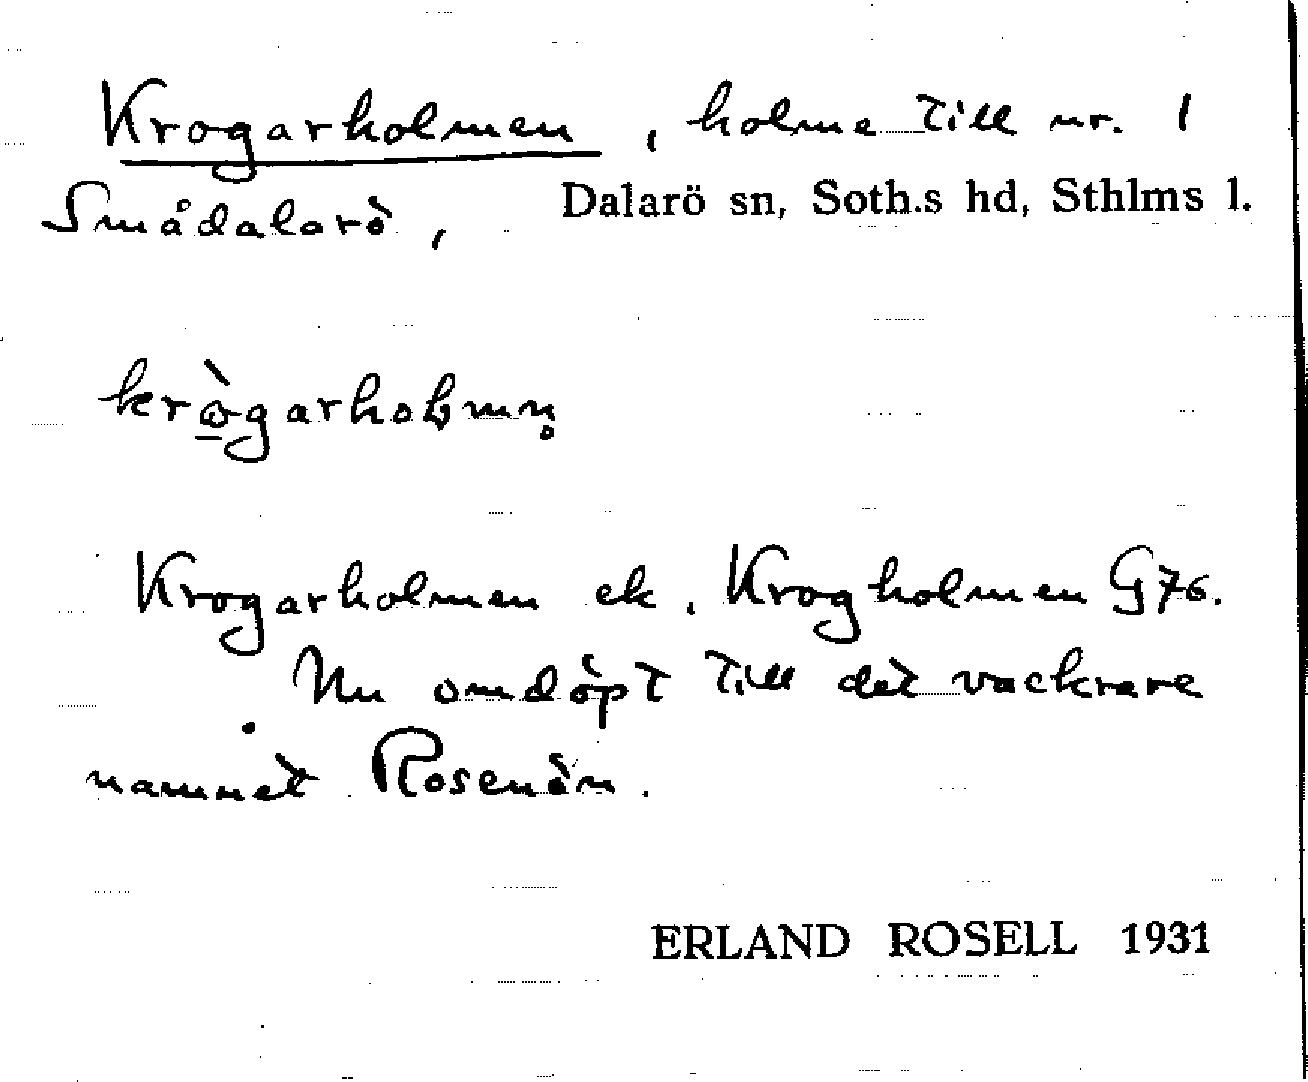 Krogarholmen, holme till nr. 1
Smådalarö, Dalarö sn, Soth.s hd, Sthlms l.
krògarhoɫmn̥
Krogarholmen ek. Krogholmen G76.
Nu omdöpt till det vackrare
namnet Rosenön.
ERLAND ROSELL 1931